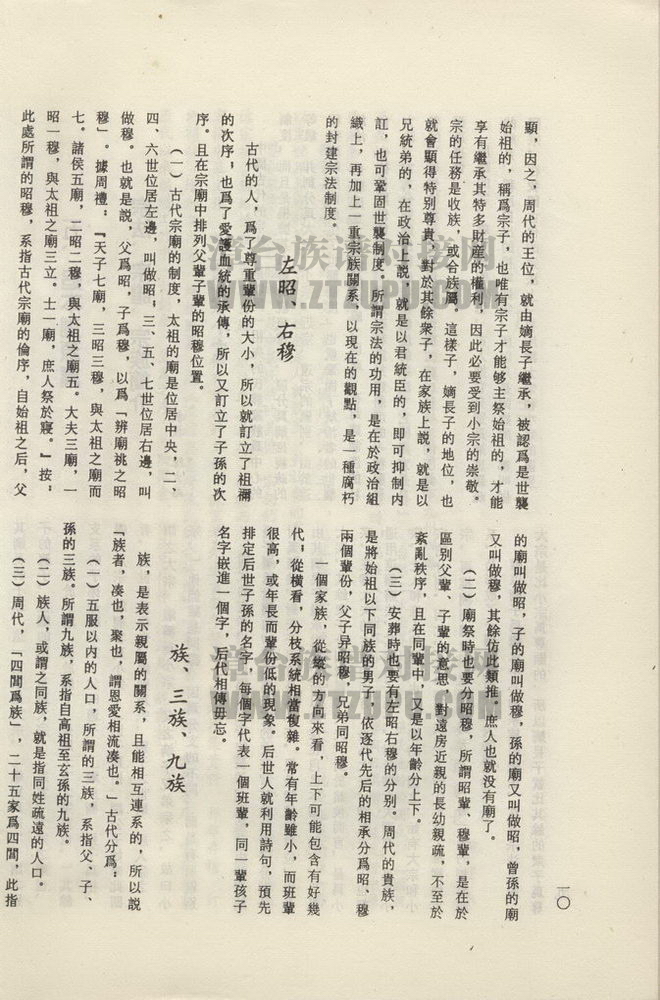 顯，因之，周代的王位，就由嫡長子繼承，被認爲是世襲
始祖的，稱爲宗子，也唯有宗子才能够主祭始祖的，才能
享有繼承其特多財産的權利，因此必要受到小宗的崇敬。
宗的任務是收族，或合族屬。這樣子，嫡長子的地位，也
就會顯得特别尊貴，對於其餘衆子，在家族上説，就是以
兄統弟的，在政治上説，就是以君統臣的，即可抑制内
訌，也可鞏固世襲制度。所謂宗法的功用，是在於政治組
織上，再加上一重宗族關系，以現在的觀點，是一種腐朽
的封建宗法制度。
左昭、右穆
古代的人，爲了尊重輩份的大小，所以就訂立了祖禰
的次序；也爲了愛護血統的承傳，所以又訂立了子孫的次
序。且在宗廟中排列父輩子輩的昭穆位置。
（一）古代宗廟的制度，太祖的廟是位居中央，二、
四、六世位居左邊，叫做昭，三、五、七世位居右邊，叫
做穆。也就是説，父爲昭，子爲穆，以爲「辨廟祧之昭
穆」。據周禮：『天子七廟，三昭三穆，與太祖之廟而
七。諸侯五廟，二昭二穆，與太祖之廟五。大夫三廟，一
昭一穆，與太祖之廟三立。士一廟，庶人祭於寢。』按：
此處所謂的昭穆，系指古代宗廟的倫序，自始祖之后，父
的廟叫做昭，子的廟叫做穆，孫的廟又叫做昭，曾孫的廟
又叫做穆，其餘仿此類推。庶人也就没有廟了。
（二）廟祭時也要分昭穆，所謂昭輩、穆輩，是在於
區别父輩、子輩的意思，對遠房近親的長幼親疏，不至於
紊亂秩序，且在同輩中，又是以年齡分上下。
（三）安葬時也要有左昭右穆的分别。周代的貴族，
是將始祖以下同族的男子，依逐代先后的相承分爲昭、穆
兩個輩份，父子异昭穆，兄弟同昭穆。
一個家族，從縱的方向來看，上下可能包含有好幾
代；從横看，分枝系統相當複雜。常有年齡雖小，而班輩
很高，或年長而輩份低的現象。后世人就利用詩句，預先
排定后世子孫的名字，每個字代表一個班輩，同一輩孩子
名字嵌進一個字，后代相傳毋忘。
族、三族、九族
族，是表示親屬的關系，且能相互連系的，所以説
「族者，凑也，聚也，謂恩愛相流凑也。」古代分爲：
（一）五服以内的人口，所謂的三族，系指父、子、
孫的三族。所謂九族，系指自高祖至玄孫的九族。
（二）族人，或謂之同族，就是指同姓疏遠的人口。
（三）周代，「四閭爲族」，二十五家爲四閭，此指
一〇
漳台族谱对接网
WWW.ZTZUPU.COM
漳台族谱对接网
WWW.ZTZUPU.COM